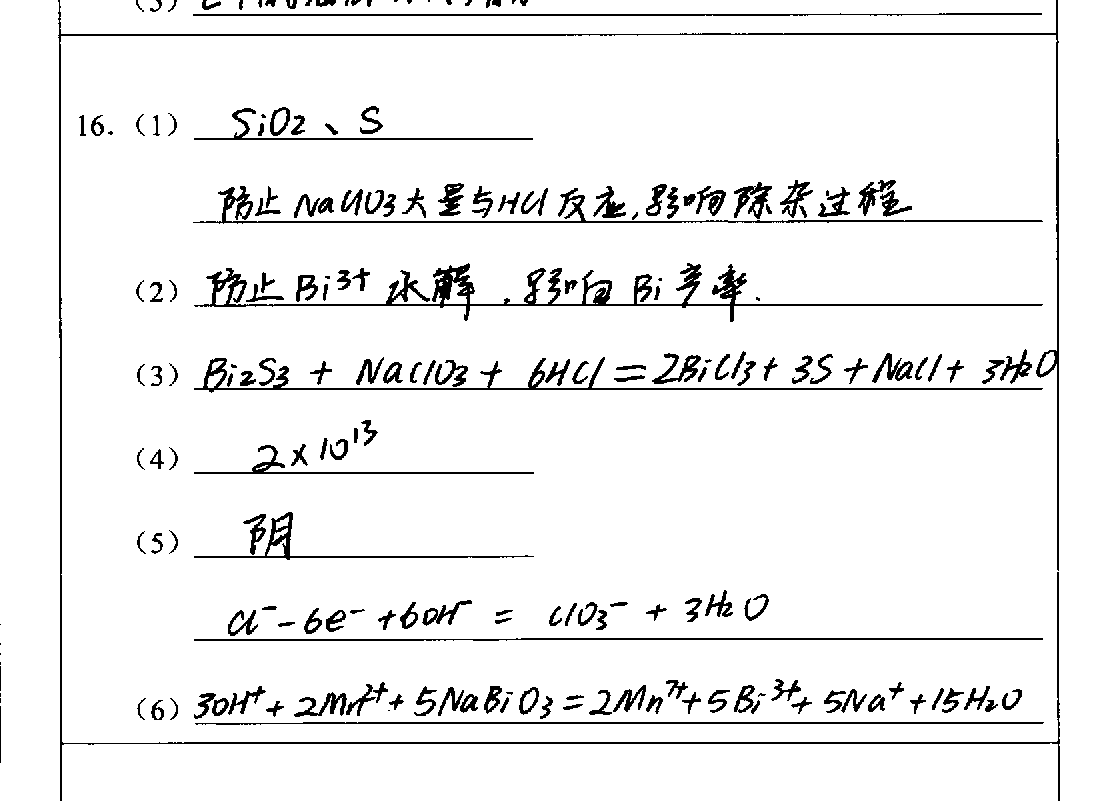 (3)
16. (1) SiO2、S
防止NaClO3大量与HCl反应,影响除杂过程
(2) 防止Bi³⁺水解,影响Bi产率.
(3) Bi2S3 + NaClO3 + 6HCl = 2BiCl3 + 3S + NaCl + 3H2O
(4) 2×10¹³
(5) 阴
Cl⁻ - 6e⁻ + 6OH⁻ = ClO3⁻ + 3H2O
(6) 30H⁺ + 2Mn²⁺ + 5NaBiO3 = 2Mn⁷⁺ + 5Bi³⁺ + 5Na⁺ + 15H2O